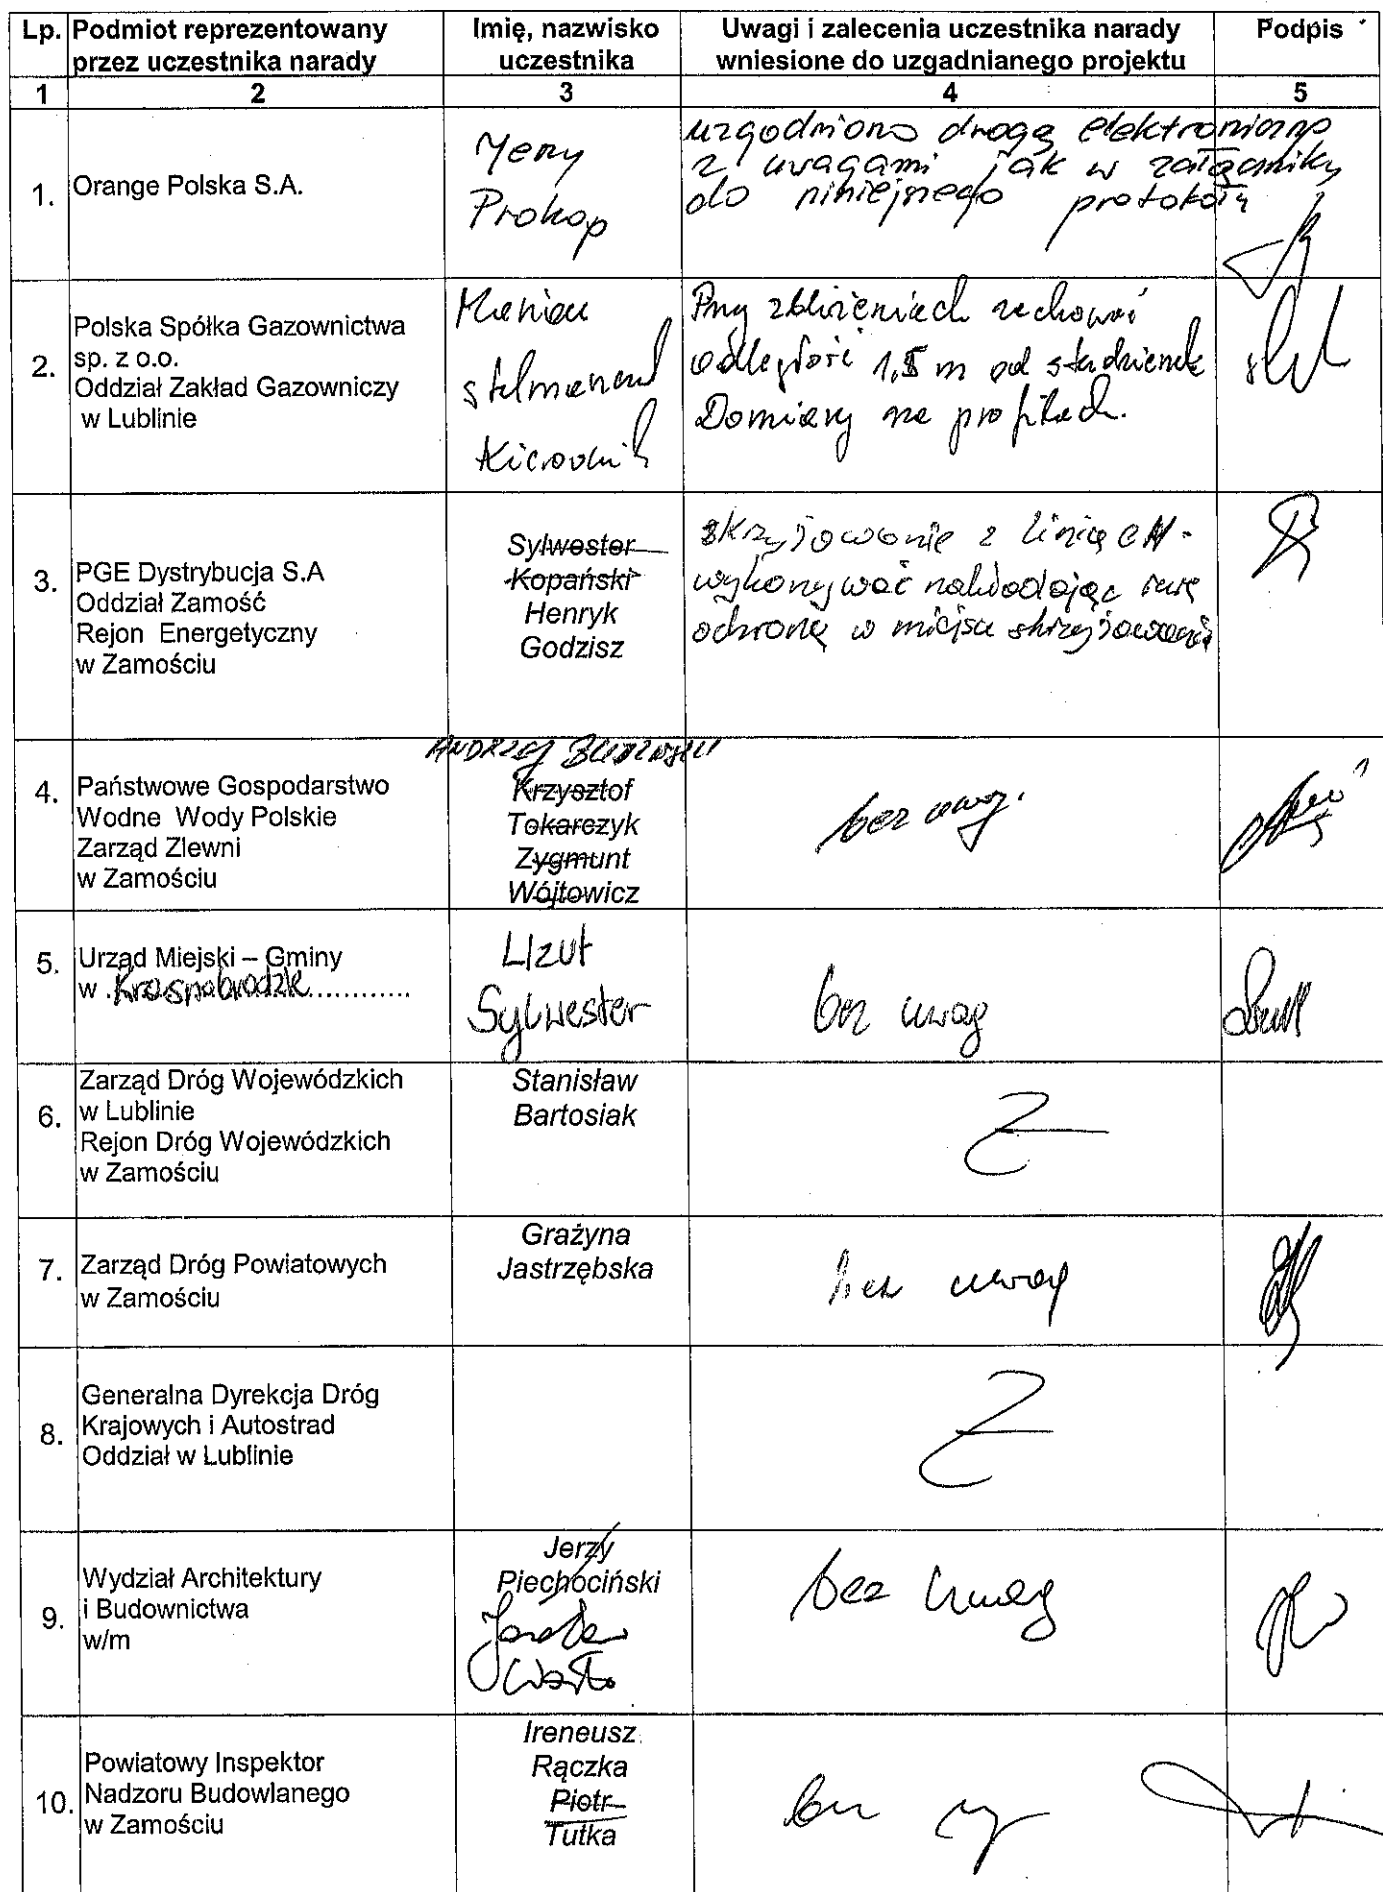 Lp. Podmiot reprezentowany przez uczestnika narady
Imię, nazwisko uczestnika
Uwagi i zalecenia uczestnika narady wniesione do uzgadnianego projektu
Podpis
1 2 3 4 5
1. Orange Polska S.A.
Jerzy
Prokop
uzgodniono drogą elektroniczną
z uwagami jak w załączniku
do niniejszego protokołu
2. Polska Spółka Gazownictwa
sp. z o.o.
Oddział Zakład Gazowniczy
w Lublinie
Kierownik
Przy zbliżeniach zachować
odległość 1,5 m od studzienek
Domiary na profilach.
3. PGE Dystrybucja S.A
Oddział Zamość
Rejon Energetyczny
w Zamościu
Sylwester
Kopański
Henryk
Godzisz
skrzyżowanie z linią
wykonywać nakładając rurę
ochronną w miejscu skrzyżowania
4. Państwowe Gospodarstwo
Wodne Wody Polskie
Zarząd Zlewni
w Zamościu
ANDRZEJ
Krzysztof
Tokarczyk
Zygmunt
Wójtowicz
bez uwag.
5. Urząd Miejski – Gminy
w .Krasnobrodzie............
Lizut
Sylwester
bez uwag
6. Zarząd Dróg Wojewódzkich
w Lublinie
Rejon Dróg Wojewódzkich
w Zamościu
Stanisław
Bartosiak
7. Zarząd Dróg Powiatowych
w Zamościu
Grażyna
Jastrzębska
bez uwag
8. Generalna Dyrekcja Dróg
Krajowych i Autostrad
Oddział w Lublinie
9. Wydział Architektury
i Budownictwa
w/m
Jerzy
Piechociński
bez uwag
10. Powiatowy Inspektor
Nadzoru Budowlanego
w Zamościu
Ireneusz
Rączka
Piotr
Tutka